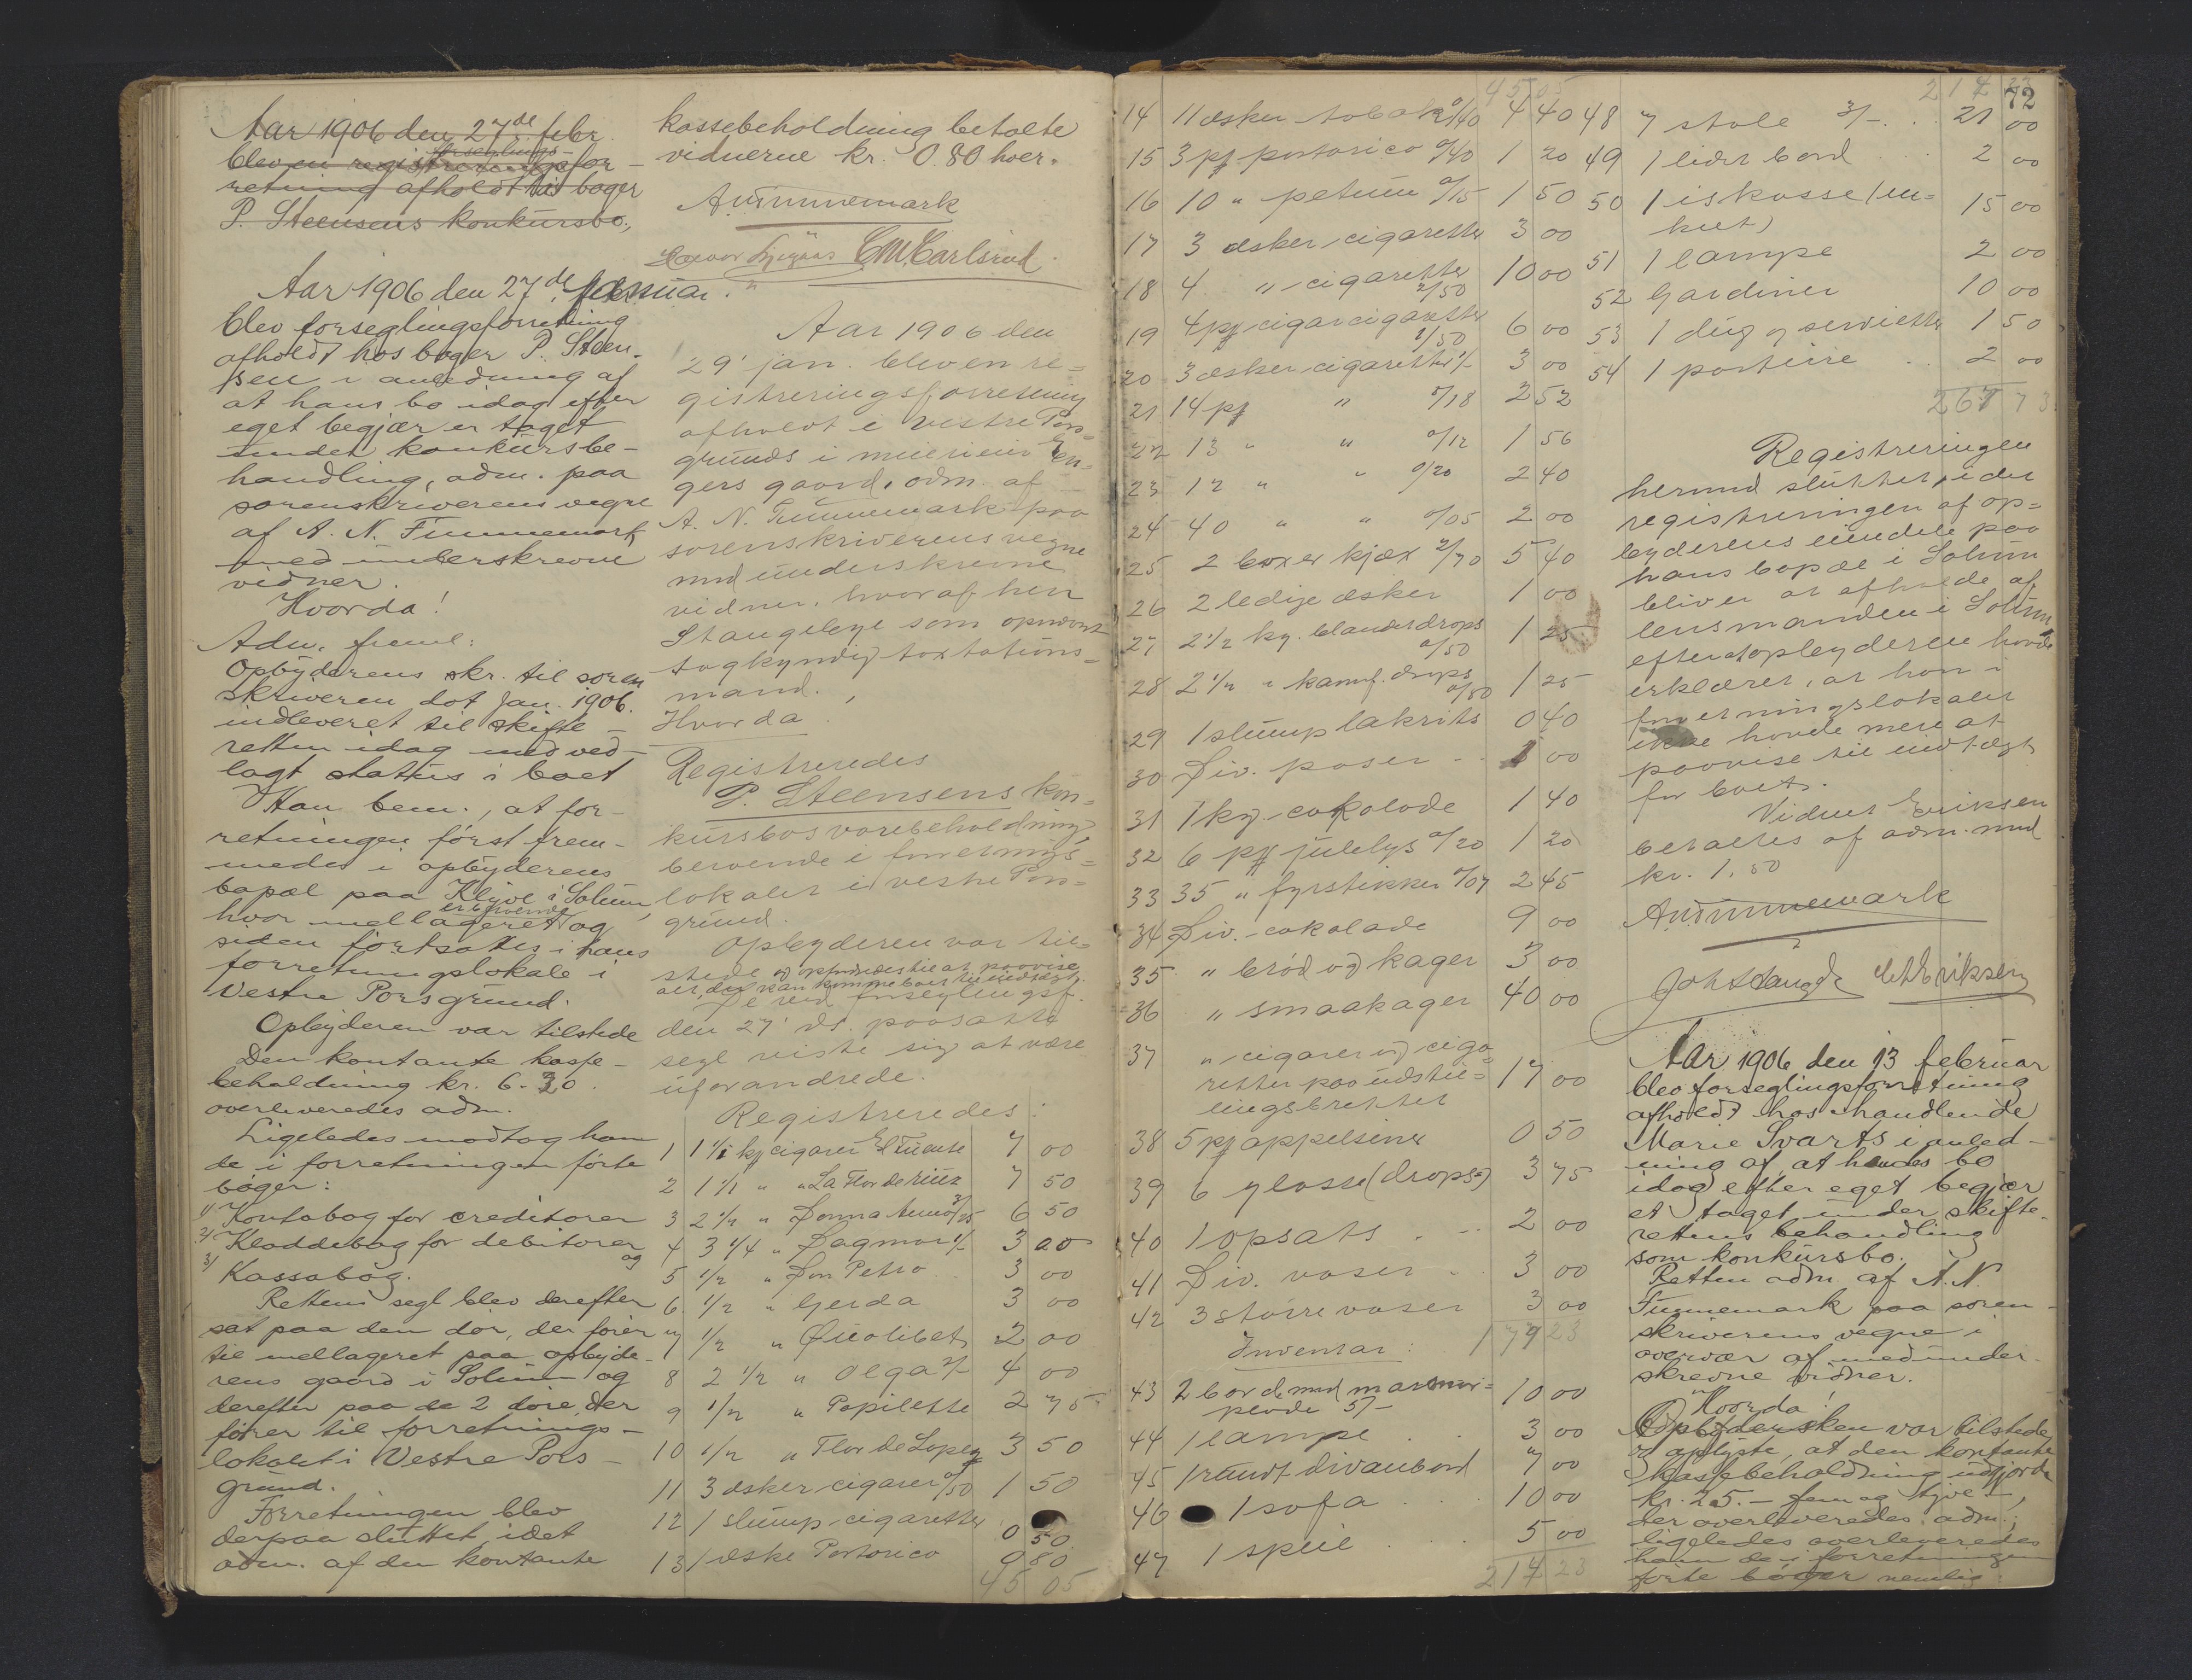 Aar 1906 den 27de febr.
blev en registrerings forseglingsfor-
retning afholdt hos bager
P. Steensens konkursbo.
Aar 1906 den 27de januar.
blev forseglingsforretning
afholdt hos bager P. Steen-
sen i anledning af
at hans bo idag efter
eget begjær er taget
under konkursbe-
handling, adm. paa
sorenskriverens vegne
af A. N. Tinnemark
med underskrevne
vidner.
Hvorda!
Adm. freml:
Opbyderens skr. til soren
skriveren dat Jan. 1906.
indleveret til skifte-
retten idag med ved-
lagt status i boet
Han bem., at for-
retningen først frem-
medes i opbyderens
bopæl paa Klyve i Solum,
hvor mellageret er beroende og
siden fortsattes i hans
forretningslokale i
Vestre Porsgrund.
Opbyderen var tilstede
Den kontante kasse-
beholdning kr. 6.30.
overleveredes adm.
Ligeledes modtog han
de i forretningen førte
bøger:
1) Kontobog for creditorer
2) Kladdebog for debitorer
og
3) Kassabog.
Rettens segl blev derefter
sat paa den dør, der fører
til mellageret paa opbyde-
rens gaard i Solum og
derefter paa de 2 døre, der
fører til forretnings-
lokalet i Vestre Pors-
grund.
Forretningen blev
derpaa sluttet, idet
adm. af den kontante
kassebeholdning betalte
vidnerne kr. 0.80 hver.
ANTinnemark
C M Carlsrud.
Aar 1906 den
29' jan. blev en re=
gistreringsforretning
afholdt i vestre Pors=
grund i
gers gaard, adm. af
A. N. Tinnemark paa
sorenskriverens vegne
med underskrevne
vidner, hvoraf herr
Stangebye som opnævnt
sagkyndig taxtations=
mand.
Hvorda!
Registreredes
P. Steensens kon=
kursbos varebeholdning,
beroende i forretnings=
lokalet i vestre Pors=
grund.
Opbyderen var til=
stede og opfordredes til at paavise
alt, der kan komme boet til indtægt.
De ved forseglingsf.
den 27' ds. paasatte
segl viste sig at være
uforandrede.
Registreredes:
1 1 1/1 kg cigarer El Fuente 7 00
2 1 1/1 " " La Flor de 7 50
3 2 1/2 " Donna 6 50
4 3 1/4 " Dagmar 1/- 3 00
5 1/2 " Don Petro 3 00
6 1/2 " Gerda 3 00
7 1/2 " Quolibet 2 00
8 2 1/2 " Olga 2/- 4 00
9 1/2 " Papilette 2 75
10 1/2 " Flor de Lopez 3 50
11 3 æsker cigarer 0/50 1 50
12 1 slump cigaretter 0 50
13 1 æske Portorico 0 80
45 05
45 05
14 11 æsker tobak 0/40 4 40
15 3 pk portorico 0/40 1 20
16 10 " petum 0/15 1 50
17 3 æsker cigaretter 3 00
18 4 " cigaretter 2/50 10 00
19 4 pk cigarcigaretter 1/50 6 00
20 3 æsker cigaretter 1/- 3 00
21 14 pk " 0/18 2 52
22 13 " " 0/12 1 56
23 12 " " 0/20 2 40
24 40 " " 0/05 2 00
25 2 boxer kjæx 2/70 5 40
26 2 ledige æsker 1 00
27 2 1/2 kg. blandet drops 0/50 1 25
28 2 1/2 " kamf. drops 0/50 1 25
29 1 slump lakrits 0 40
30 Div. poser 1 00
31 1 kg cokolade 1 40
32 6 pk julelys 0/20 1 20
33 35 " fyrstikker 0/07 2 45
34 Div. cokolade 9 00
35 " brød og kager 3 00
36 " smaakager 40 00
37 " cigarer og ciga=
retter paa udstil=
lingsbrettet 17 00
38 5 pk appelsiner 0 50
39 6 glasse (drops) 3 75
40 1 opsats 2 00
41 Div. vaser 3 00
42 3 større vaser 3 00
179 23
Inventar:
43 2 bord med marmor=
plade 5/- 10 00
44 1 lampe 3 00
45 1 rundt divanbord 7 00
46 1 sofa 10 00
47 1 speil 5 00
214 23
72
48 7 stole 3/- 21 00
49 1 lidet bord 2 00
50 1 iskasse (en=
ket) 15 00
51 1 lampe 2 00
52 Gardiner 10 00
53 1 dug og servietter 1 50
54 1 portiere 2 00
267 73
Registreringen
hermed sluttet, idet
registreringen af op=
byderens eiendele paa
hans bopæl i Solum
bliver at afholde af
lensmanden i Solum,
efterat opbyderen havde
erklæret, at han i
forretningslokalet
ikke havde mere at
paavise til indtægt
for boet.
Vidnet Eriksen
betaltes af adm. med
kr. 1.50
ANTinnemark
Aar 1906 den 13 februar
blev forseglingsforretning
afholdt hos handlende
Marie Svarts i anled-
ning af, at hendes bo
idag efter eget begjær
et taget under skifte-
rettens behandling
som konkursbo.
Retten adm. af A. N.
Tinnemark paa soren-
skriverens vegne i
overvær af medunder-
skrevne vidner.
Hvorda!
Opbydersken var tilstede
og oplyste, at den kontante
kassebeholdning udgjorde
kr. 25.- fem og tyve -,
der overleveredes adm.;
ligeledes overleveredes
ham de i forretningen
førte bøger nemlig